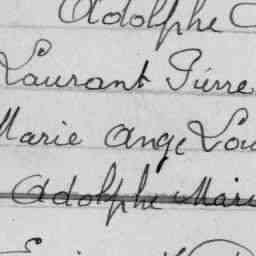 Adolphe
Laurant Pierre
Marie Ange Lou
Adolphe Mari